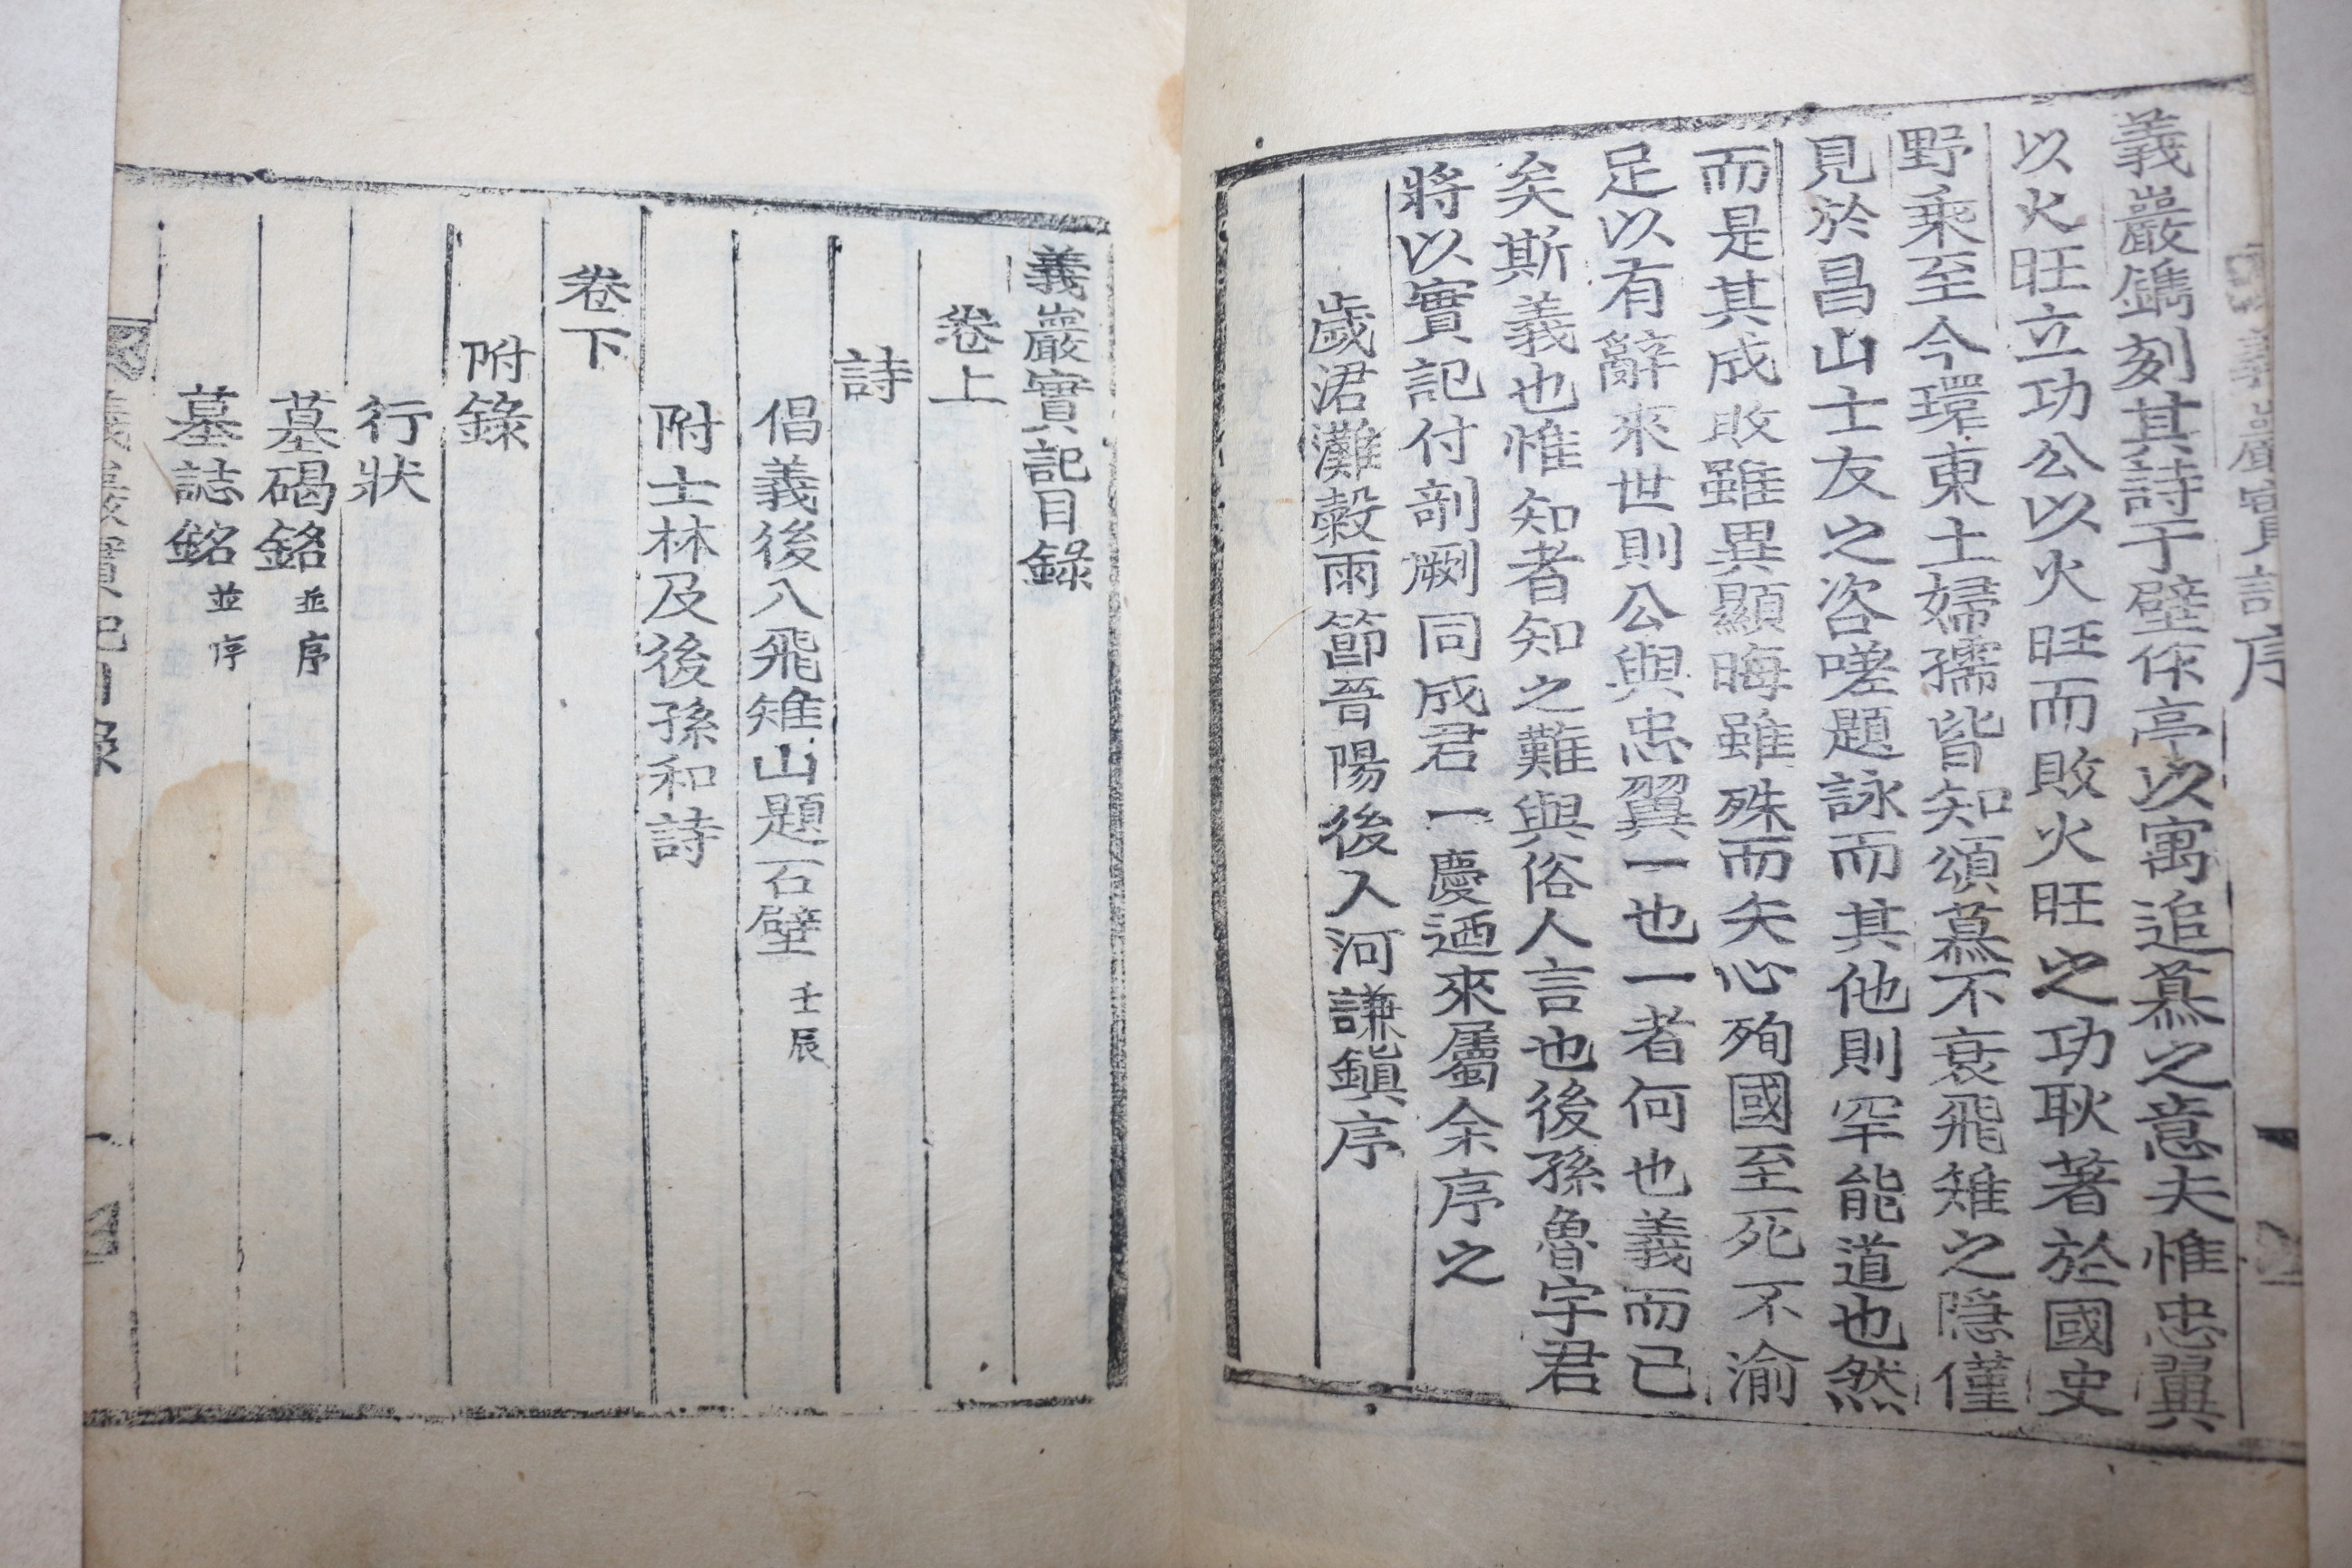 義巖實記序
義巖鐫刻其詩于壁作亭以寓追慕之意夫惟忠翼
以火旺立功公以火旺而敗火旺之功耿著於國史
野乘至今環東土婦孺皆知頌慕不衰飛雉之隱僅
見於昌山士友之咨嗟題詠而其他則罕能道也然
而是其成敗雖異顯晦雖殊而矢心殉國至死不渝
足以有辭來世則公與忠翼一也一者何也義而已
矣斯義也惟知者知之難與俗人言也後孫魯宇君
將以實記付剞劂同成君一慶迺來屬余序之
歲涒灘穀雨節晉陽後人河謙鎭序
義巖實記目錄
卷上
詩
倡義後入飛雉山題石壁 壬辰
附士林及後孫和詩
卷下
附錄
行狀
墓碣銘 並序
墓誌銘 並序
義巖實記目錄 一